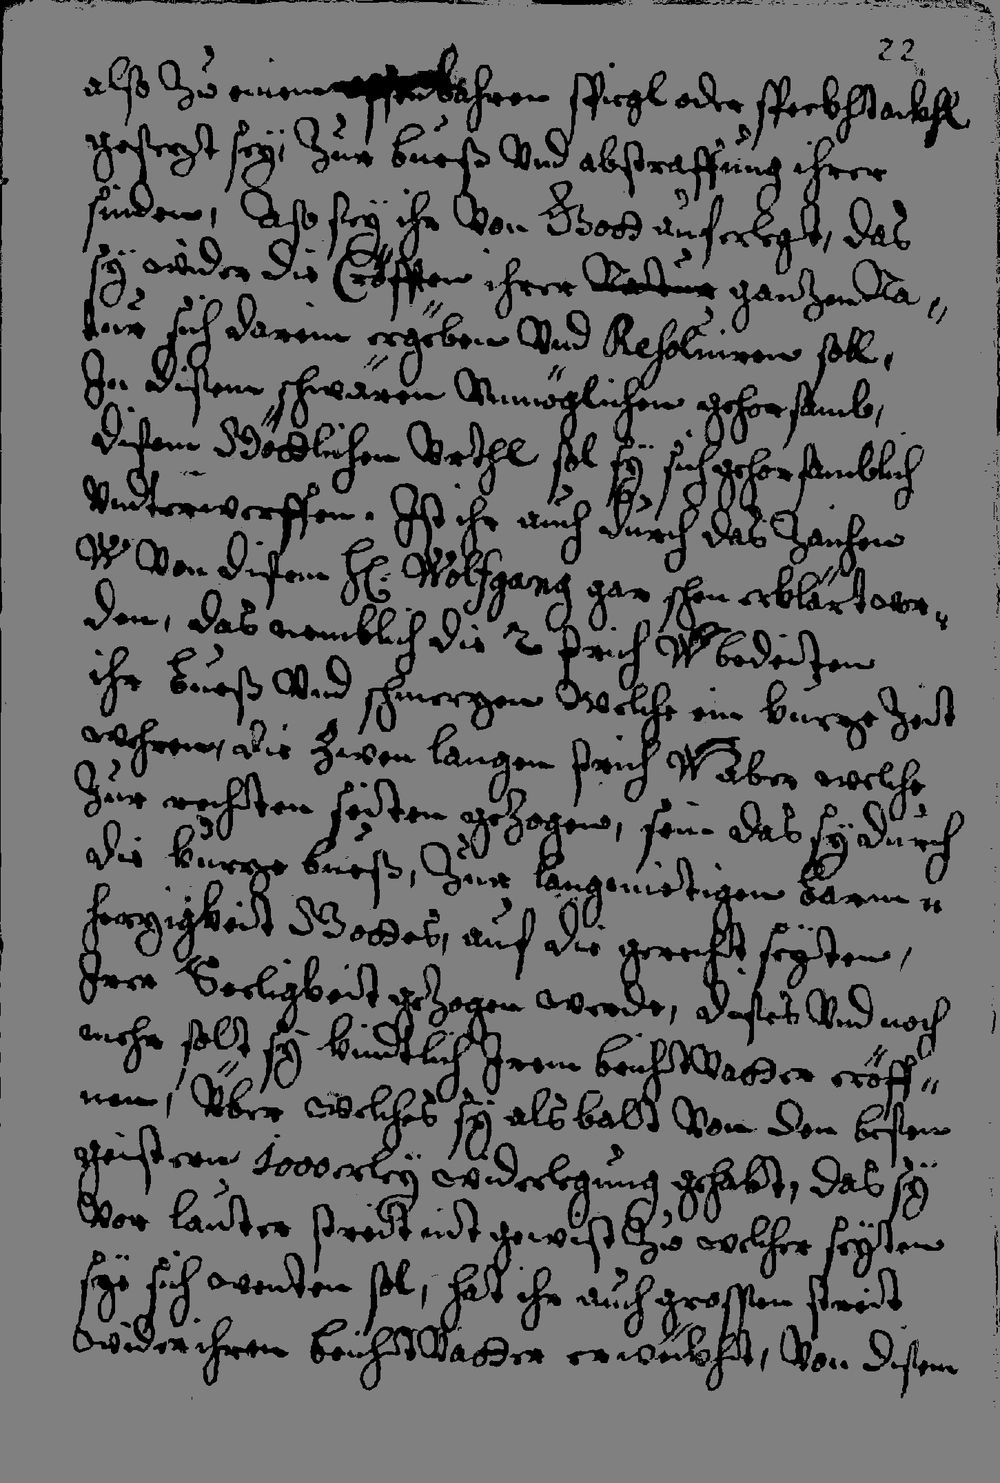 22
alß Zu einem offenbahren spiegl oder specktackhl
gesezt seÿ, Zur bueß Vnd abstraffung ihrer
sinden, Aso seÿ ihr Von Gott auferlegt, das
sÿ wider die Cröfften ihrer Natuur ganzen Na=
tur sich darein ergeben Vnd Resolviren soll,
In disem schwären Vnmöglichen gehorsamb,
disem Göttlichen Vrthl sol sÿ sich gehorsamblich
Vndterwerffen. Ist ihr auch durch das Zaichen
W Von disem H: Wolfgang gar schen erklärt wor=
den, das nemblich die 2 strich W bedeiten
ihr bueß Vnd schmerzen Welche ein kurze Zeit
wehren, die Zween langen strich W aber welche
Zur rechten seiten geZogen, sein das sÿ durch
die kurze bueß, Zur langmietigen barm=
herzigkeit Gottes, auf die gerecht seÿten,
Irer Seeligkeit geZogen werde, dises Vnd noch
mehr solt sÿ kindtlich Irem beicht Vatter eröff=
nen, Über welches sÿ als baldt Von den besen
geistern 1000erleÿ widerlegung gehabt, das sÿ
Vor lauter streit nit gewist Zu welcher seÿten
sÿe sich wenten sol, hat ihr auch grossen streit
wider ihren beicht Vatter erweckht, Von disem